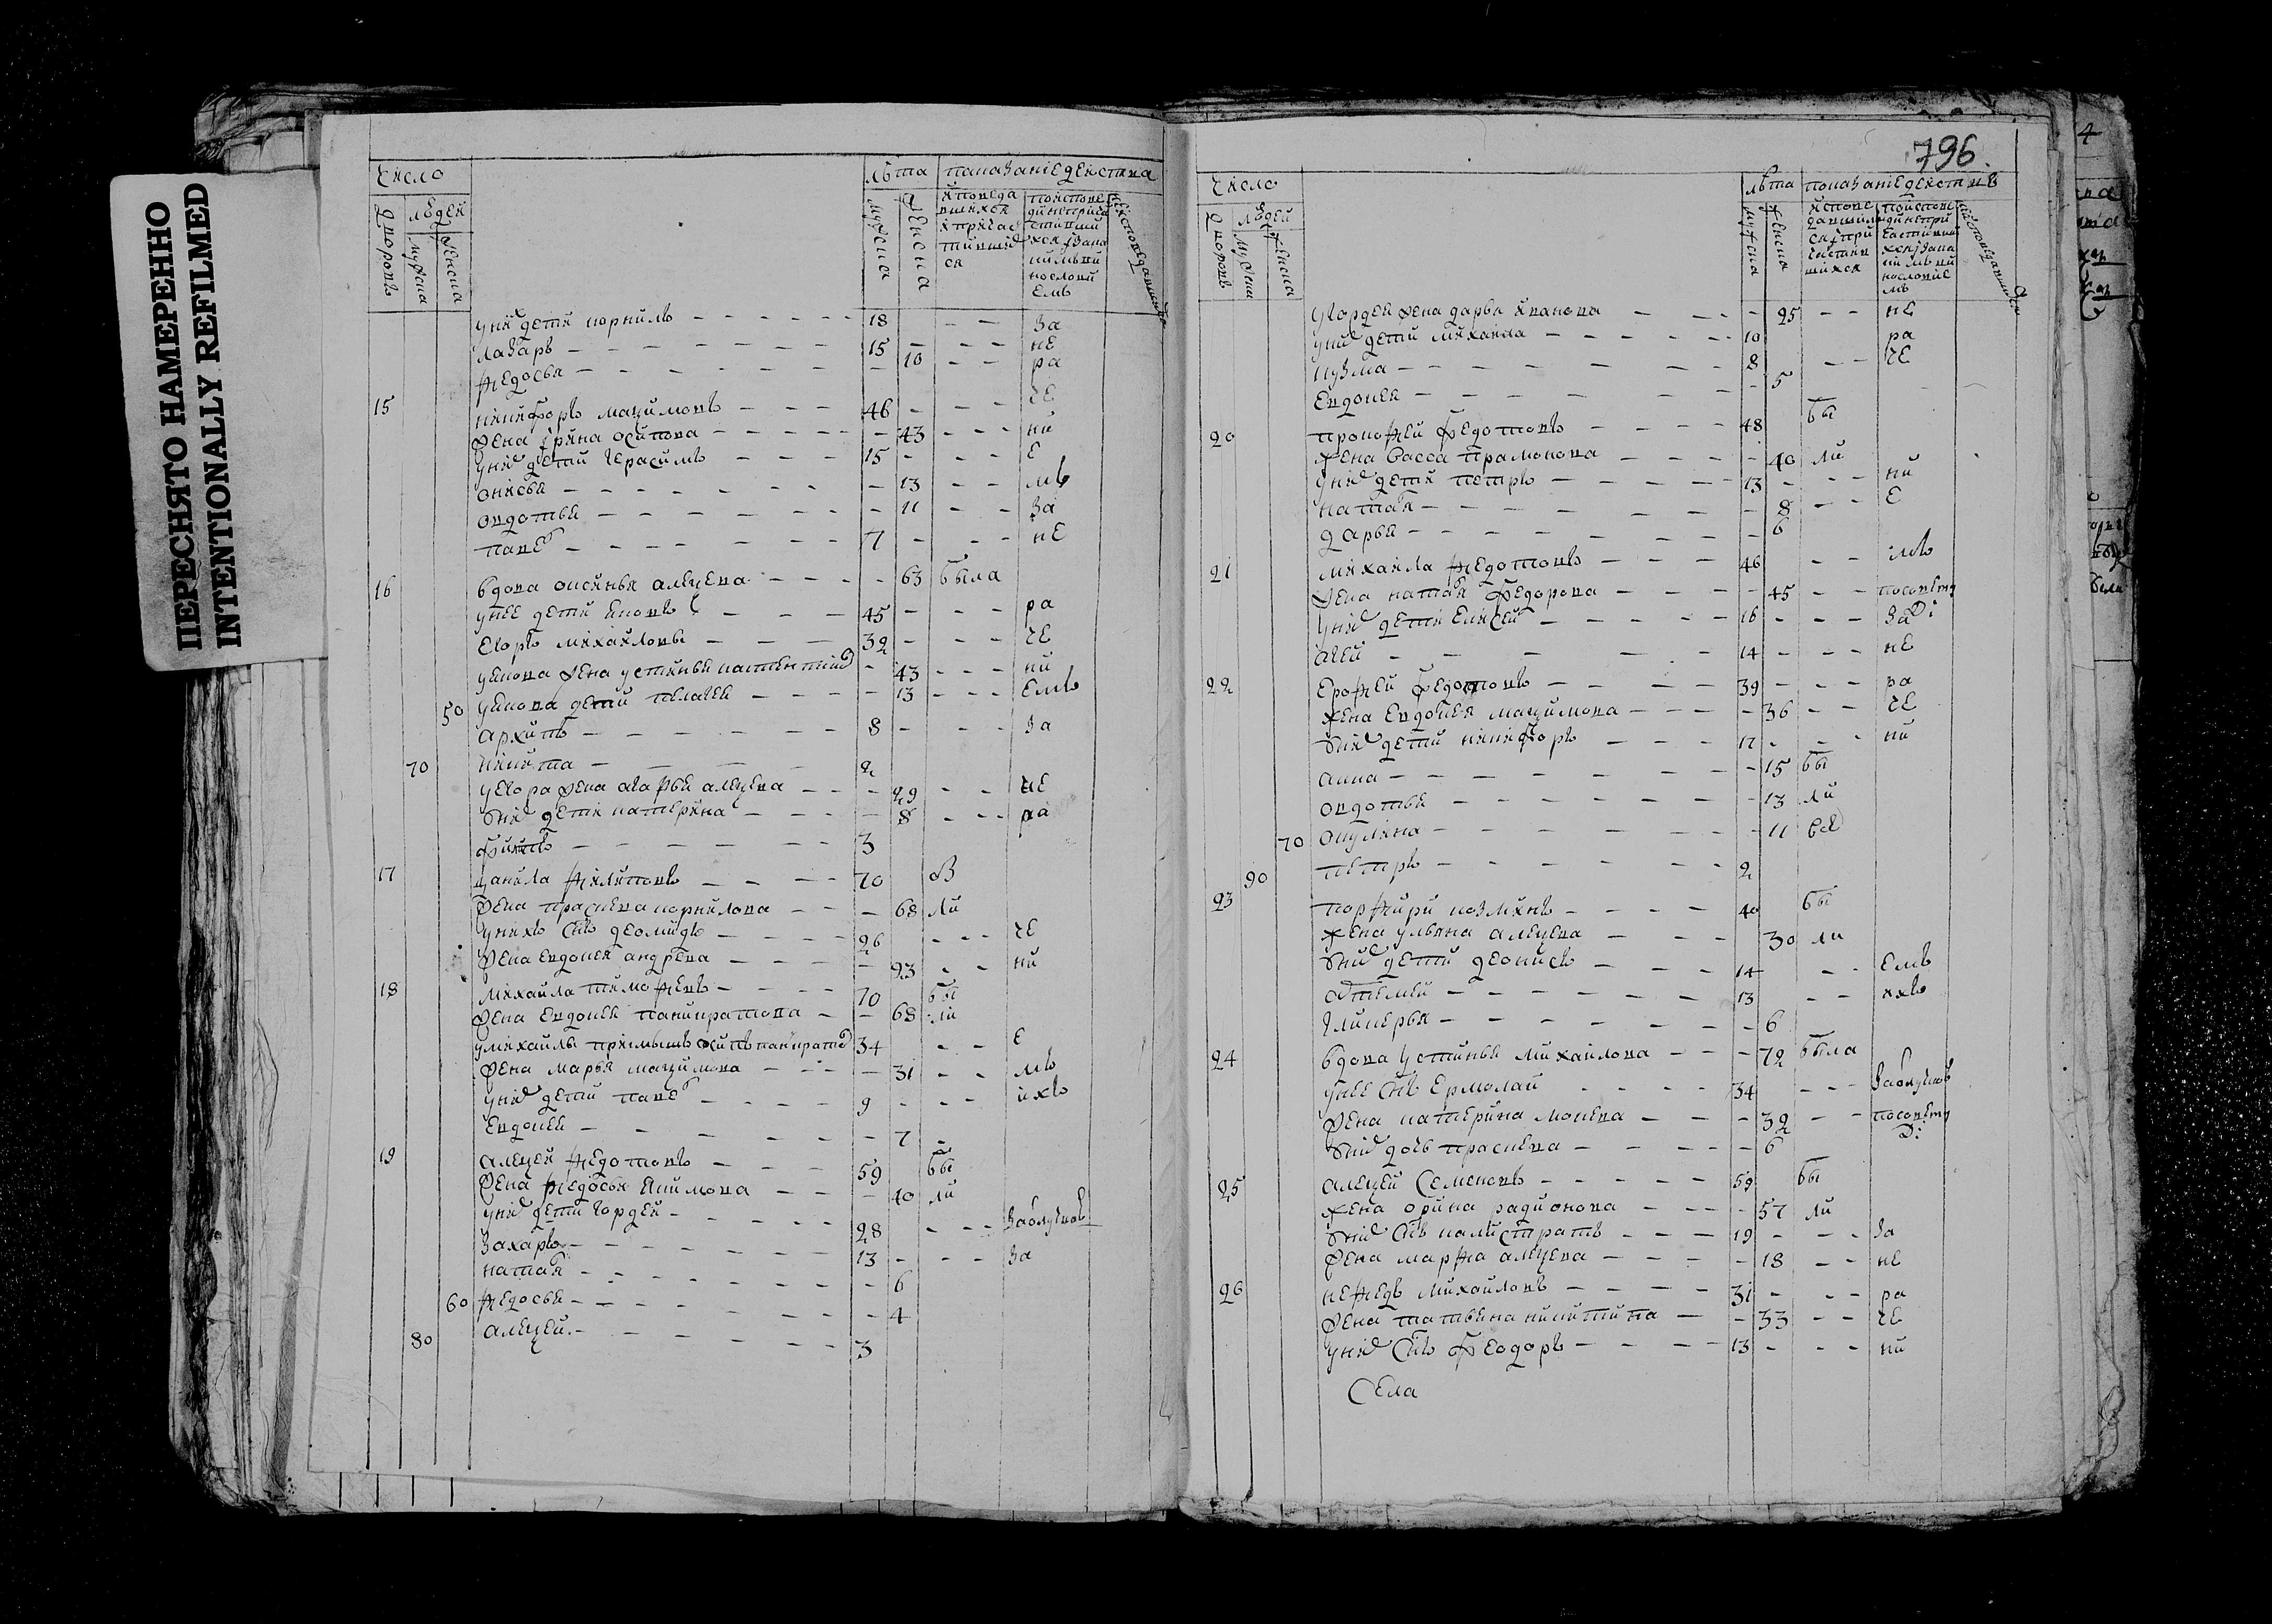 ПЕРЕСНЯТО НАМЕРЕННО
INTENTIONALLY REFILMED
число лѣта показание действа
дворовъ людей мужска женска мужеска женска
у них дети корнилъ 18 за
лазарь 15 не
федосья 10 ра
15 никифоръ мацимовъ 46 че
жена ирина осипова 43 ни
у них дети герасимъ 15 е
онисья 13 мъ
овдотья 11 за
паве 7 не
16 вдова аксинья алецева 63 была
у нее дети яковъ 45 ра
егоръ михайловъ 32 че
у якова жена устинья 43 ни
50 у якова дети пелагея 13 емъ
архипъ 8 за
70 никита 2
у егора жена агафья алецева 29 не
у них дети катерина 8 ра
3
17 данила филиповъ 70
жена прасковья корнилова 68 ли
у нихъ снъ деомидъ 26 че
жена евдокея андреева 23 ни
18 михайла тимофеевъ 70 бы
жена евдокея панкратова 68 ли
у михайлы примышъ осипъ панкратов 34 е
жена марья мацимова 31 мъ
у них дети паве 9 ихъ
евдокея 7
19 алецей федотовъ 59 бы
жена федосья якимова 40 ли
у них дети гордей 28
захаръ 13 за
натая 6
60 федосья 4
80 алецей 3
796.
число лѣта показание действъ
дворовъ людей мужеска женска мужска женска
у гордея жена дарья иванова 25 не
у них дети михаила 10 ра
кузма 8 че
евдокея 5
20 прокофей федотовъ 48 бы
жена васса прамонова 40 ли
у них дети петръ 13 ни
натая 8 е
дарья 6
21 михаила федотовъ 46 мъ
жена натая федорова 45 посовету
у них дети елисей 16 за
агей 14 не
22 ерофей федотовъ 39 ра
жена евдокея мацимова 36 че
у них дети никифоръ 17 ни
анна 15 бы
овдотья 13 ли
70 окулина 11 все
90 петръ 2
23 порфири козминъ 40 бы
жена ульяна алецева 30 ли
у них дети деонисъ 14 емъ
артемей 13 ихъ
гликерья 6
24 вдова устинья михаилова 72 была
у нее снъ ермолай 34
жена катерина мокева 32 посовету
у них дочь прасковья 6
25 алецей семеновъ 59 бы
жена орина радионова 57 ли
у них снъ калистратъ 19 за
жена марфа алецева 18 не
26 нефедъ михайловъ 31 ра
жена татьяна никитина 33 че
у них снъ феодоръ 13 ни
Села